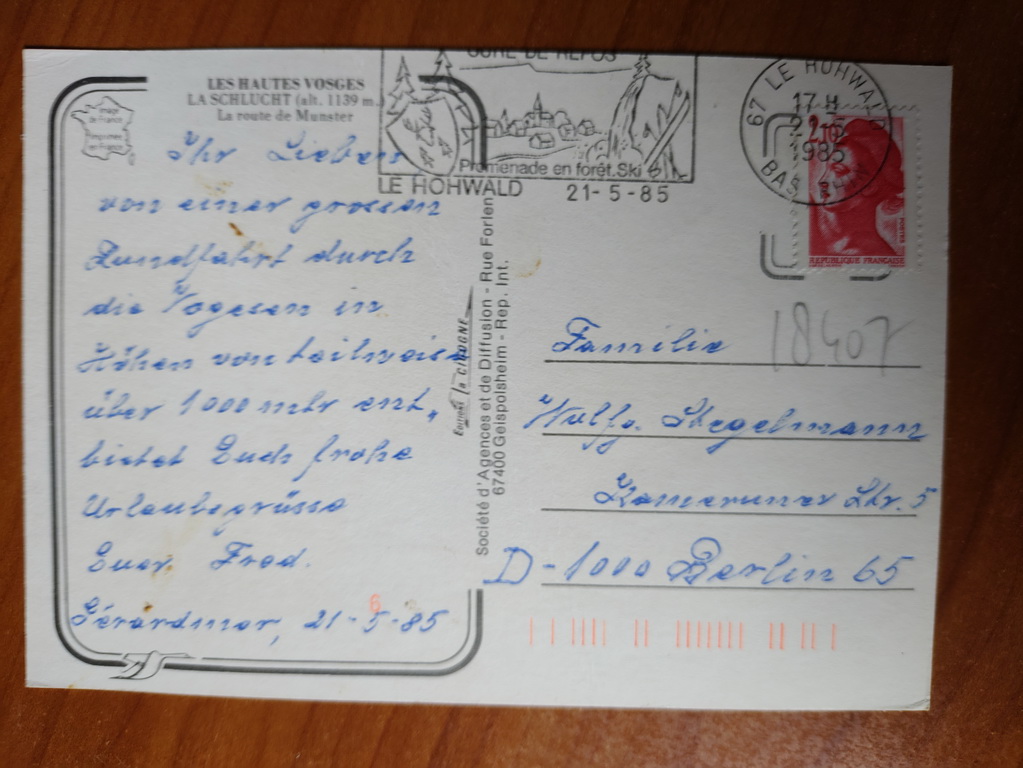 LES HAUTES VOSGES
LA SCHLUCHT (alt. 1139 m.)
La route de Munster
Image de France
Imprimée en France
Ihr Lieben
von einer grossen
Rundfahrt durch
die Vogesen in
Höhen von teilweise
über 1000 mtr ent„
bietet Euch frohe
Urlaubsgrüsse
Euer Fred.
Gérardmer, 21-5-85
6
Editions la CIGOGNE
Société d'Agences et de Diffusion - Rue Forlen
67400 Geispolsheim - Rep. Int.
CURE DE REPOS
Promenade en forêt. Ski
LE HOHWALD 21-5-85
67 LE HOHWALD
17 H
21-5
1985
BAS RHIN
2,10
REPUBLIQUE FRANÇAISE
18407
Familie
Wolfg. Stegelmann
Kameruner Str. 5
D-1000 Berlin 65